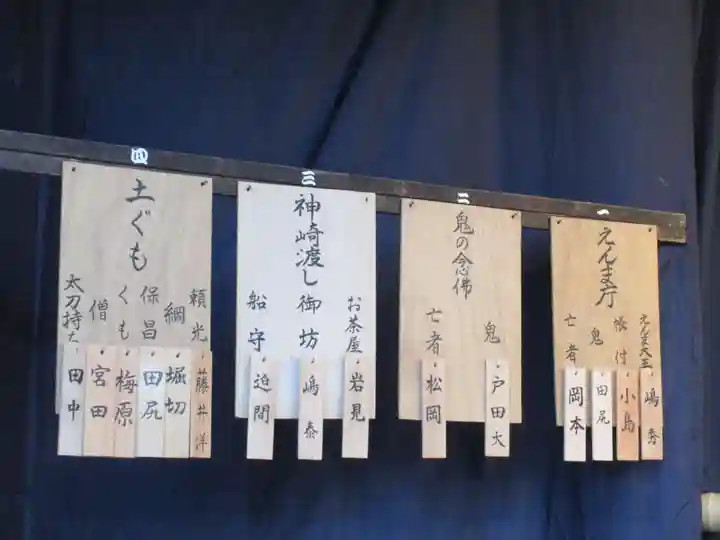 一
えんま庁
えんま大王
嶋秀
帳付
小島
鬼
田尻
亡者
岡本
二
鬼の念佛
鬼
戸田大
亡者
松岡
三
神崎渡し
お茶屋
岩見
御坊
嶋泰
船守
迫間
四
土ぐも
頼光
藤井洋
綱
堀切
保昌
田尻
くも
梅原
僧
宮田
太刀持ち
田中